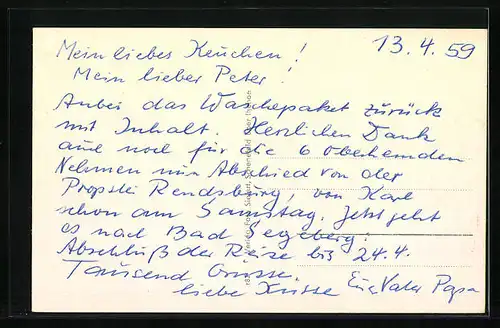 13.4.59
Mein liebes Keuchen!
Mein lieber Peter!
Anbei das Wäschepaket zurück
mit Inhalt. Herzlichen Dank
auch noch für die 6 Oberhemden
Nehmen nun Abschied von der
Propstei Rendsburg, von Karl
schon am Samstag. Jetzt geht
es nach Bad Segeberg.
Abschluß der Reise bis 24.4.
Tausend Grüsse
liebe Küsse Eur Vater Papa